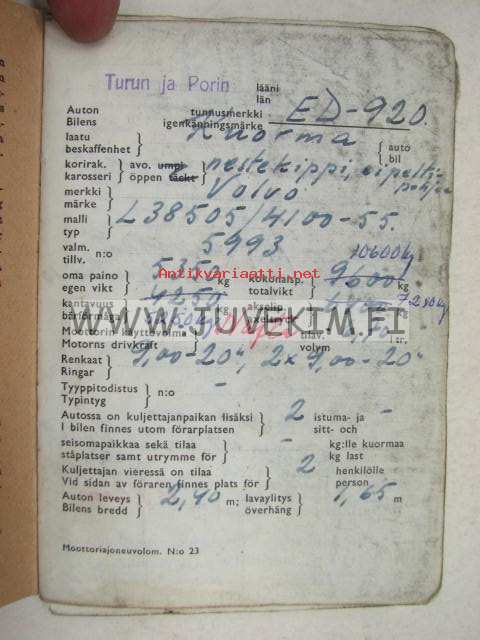 Turun ja Porin lääni län
Auton Bilens tunnusmerkki igenkänningsmärke ED-920.
laatu beskaffenhet Kuorma auto bil
korirak. karosseri avo. öppen umpi täckt nestekippi,
merkki märke Volvo
malli typ L38505/4100-55.
valm. tillv. n:o 5993
10600kg
oma paino egen vikt 5350 kg kokonaisp. totalvikt 9600 kg
Antikvariaatti.net
kantavuus 4250 kg akselip. kg 7200kg
WWW.JUVEKIM.FI
Moottorin käyttövoima Motorns drivkraft tilav. volym ltr.
Renkaat Ringar 9,00-20", 2x9,00-20"
Tyyppitodistus Typintyg n:o -
Autossa on kuljettajanpaikan lisäksi I bilen finnes utom förarplatsen 2 istuma- ja sitt- och -
seisomapaikkaa sekä tilaa ståplatser samt utrymme för - kg:lle kuormaa kg last
Kuljettajan vieressä on tilaa Vid sidan av föraren finnes plats för 2 henkilölle person
Auton leveys Bilens bredd 2,40 m; lavaylitys överhäng 1,65 m
Moottoriajoneuvolom. N:o 23